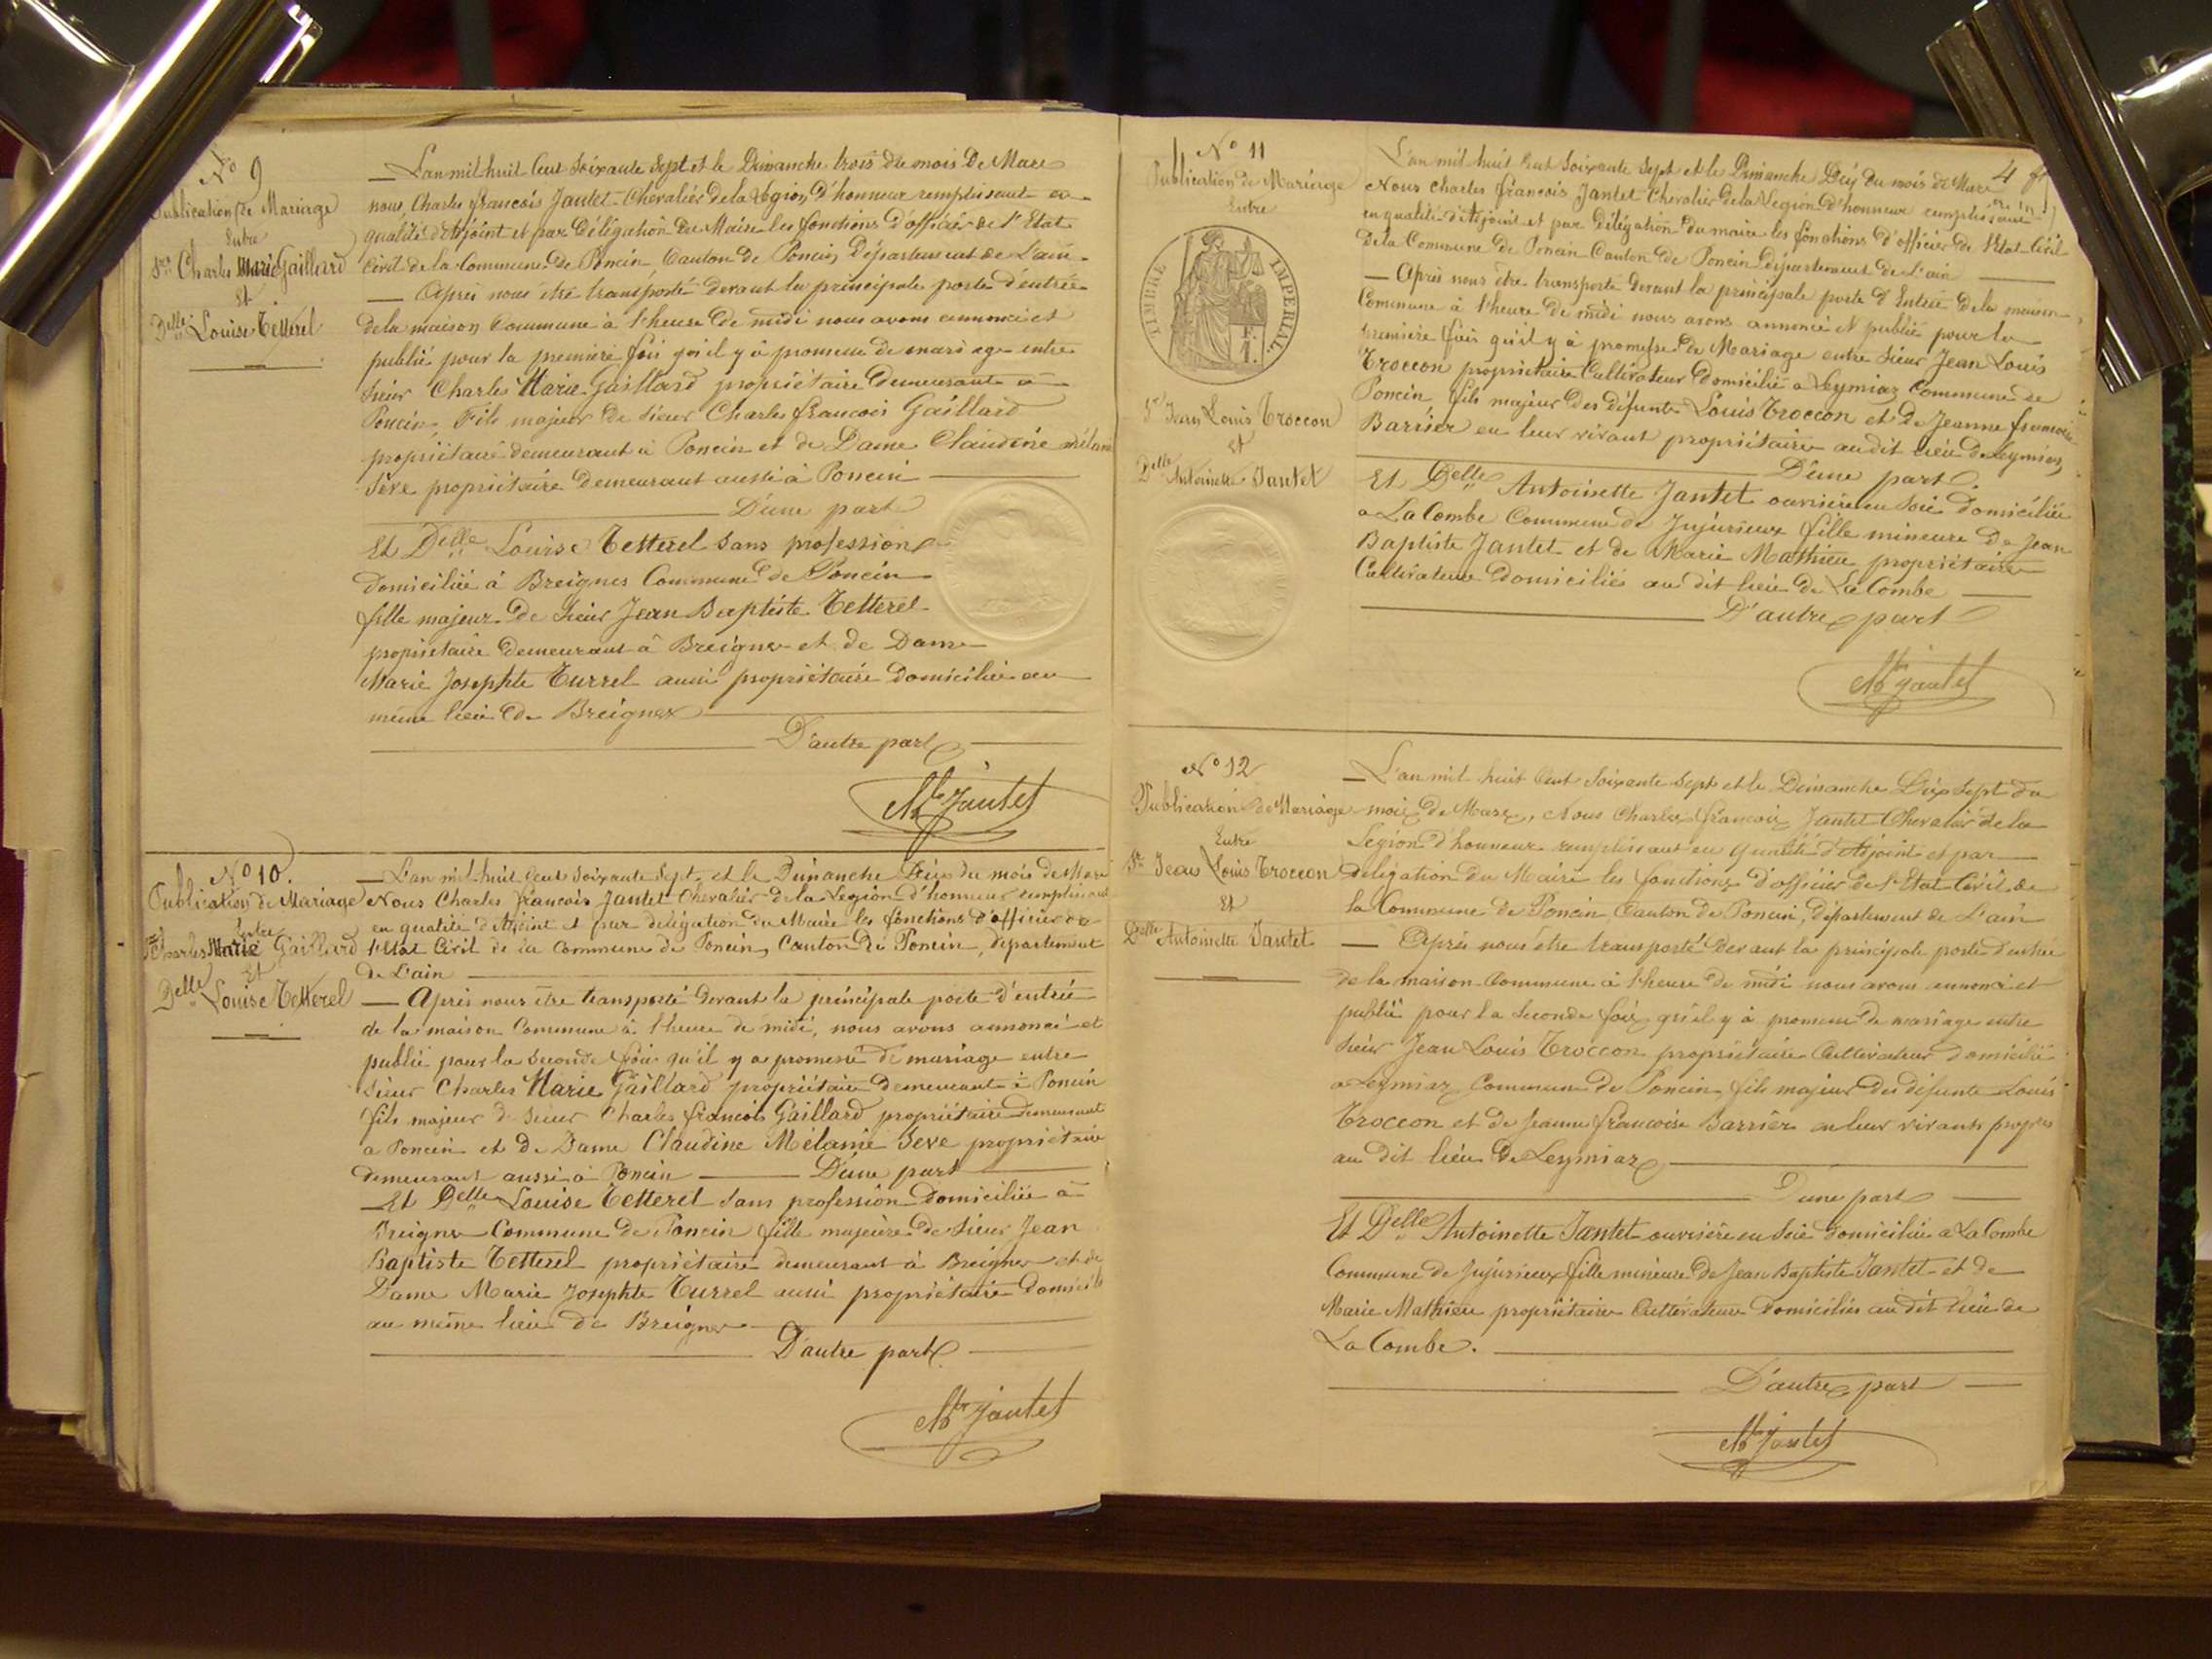 N° 9
Publication de Mariage
Entre
Sr Charles Marie Gaillard
Et
Delle Louise Tetterel
L'an mil huit Cent Soixante Sept et le Dimanche trois du mois De Mars
nous, Charles francois Jantet Chevalier De la Légion D'honneur remplissant en
qualité d'Adjoint et par Délégation du Maire les fonctions d'officier de l'Etat
Civil de la Commune De Poncin, Canton de Poncin Département de L'ain
Après nous être transporté devant la principale porte d'entrée
de la maison Commune à l'heure de midi nous avons annoncé et
publié pour la première fois qu'il y à promesse de mariage entre
Sieur Charles Marie Gaillard propriétaire Demeurant à
Poncin, Fils majeur de Sieur Charles francois Gaillard
propriétaire demeurant à Poncin et de Dame Claudine Mélanie
Sève propriétaire Demeurant aussi à Poncin
D'une part
Et Delle Louise Tetterel Sans profession
Domiciliée à Breignes Commune de Poncin
fille majeur De Sieur Jean Baptiste Tetterel
propriétaire Demeurant à Breignes et de Dame
Marie Josephte Turrel aussi propriétaire Domiciliée au
même lieu de Breignes
D'autre part
Jantet
N° 10.
Publication de Mariage
Entre
Sr Charles Marie Gaillard
Et
Delle Louise Tetterel
L'an mil huit Cent Soixante Sept, et le Dimanche Dix du mois de Mars
Nous Charles francois Jantet Chevalier de la Légion d'honneur remplissant
en qualité d'Adjoint et par délégation du Maire les fonctions d'officier de
l'Etat Civil de la Commune de Poncin, Canton de Poncin, département
de L'ain
Après nous être transporté devant la principale porte d'entrée
de la maison Commune à l'heure de midi, nous avons annoncé et
publié pour la Seconde fois qu'il y a promesse de mariage entre
Sieur Charles Marie Gaillard propriétaire demeurant à Poncin
fils majeur de Sieur Charles francois Gaillard propriétaire demeurant
a Poncin et de Dame Claudine Mélanie Seve propriétaire
demeurant aussi à Poncin D'une part
Et Delle Louise Tetterel Sans profession Domiciliée à
Breignes Commune de Poncin fille majeure de Sieur Jean
Baptiste Tetterel propriétaire demeurant à Breignes et de
Dame Marie Josephte Turrel aussi propriétaire Domicilié
au même lieu de Breignes
D'autre part
Jantet
4
N° 11
Publication de Mariage
Entre
TIMBRE IMPERIAL
1 F.
Sr Jean Louis Troccon
Et
Delle Antoinette Jantet
L'an mil huit Cent Soixante Sept et le Dimanche Dix Du mois de Mars
Nous Charles francois Jantet Chevalier De la Légion D'honneur remplissant
en qualité d'Adjoint et par Délégation du maire les fonctions d'officier de l'Etat Civil
De la Commune de Poncin Canton de Poncin Département de L'ain
Après nous être transporté devant la principale porte d'Entrée De la maison
Commune à l'heure de midi nous avons annoncé et publié pour la
première fois qu'il y à promesse de Mariage entre Sieur Jean Louis
Troccon propriétaire Cultivateur Domicilié a Leymiaz Commune de
Poncin fils majeur Des défunts Louis Troccon et de Jeanne francoise
Barrier en leur vivant propriétaires au dit lieu de Leymiaz
D'une part
Et Delle Antoinette Jantet ouvrière en Soie Domiciliée
a La Combe Commune de Jujurieux fille mineure De Jean
Baptiste Jantet et de Marie Mathieu propriétaires
Cultivateurs Domiciliés au dit lieu de La Combe
D'autre part
Jantet
N° 12
Publication de Mariage
Entre
Sr Jean Louis Troccon
Et
Delle Antoinette Jantet
L'an mil huit Cent Soixante Sept et le Dimanche Dix Sept du
mois de Mars, Nous Charles francois Jantet Chevalier de la
Légion d'honneur remplissant en qualité d'Adjoint et par
délégation du Maire les fonctions d'officier de l'Etat Civil de
la Commune de Poncin, Canton de Poncin, département de L'ain
Après nous être transporté devant la principale porte d'entrée
de la maison Commune à l'heure de midi nous avons annoncé et
publié pour la Seconde fois qu'il y à promesse de mariage entre
Sieur Jean Louis Troccon propriétaire Cultivateur domicilié
a Leymiaz Commune de Poncin fils majeur des défunts Louis
Troccon et de Jeanne francoise Barrier en leur vivants propres
au dit lieu de Leymiaz
D'une part
Et Delle Antoinette Jantet ouvrière en Soie domiciliée a La Combe
Commune de Jujurieux fille mineure De Jean Baptiste Jantet et de
Marie Mathieu propriétaires Cultivateurs Domiciliés au dit lieu de
La Combe.
D'autre part
Jantet